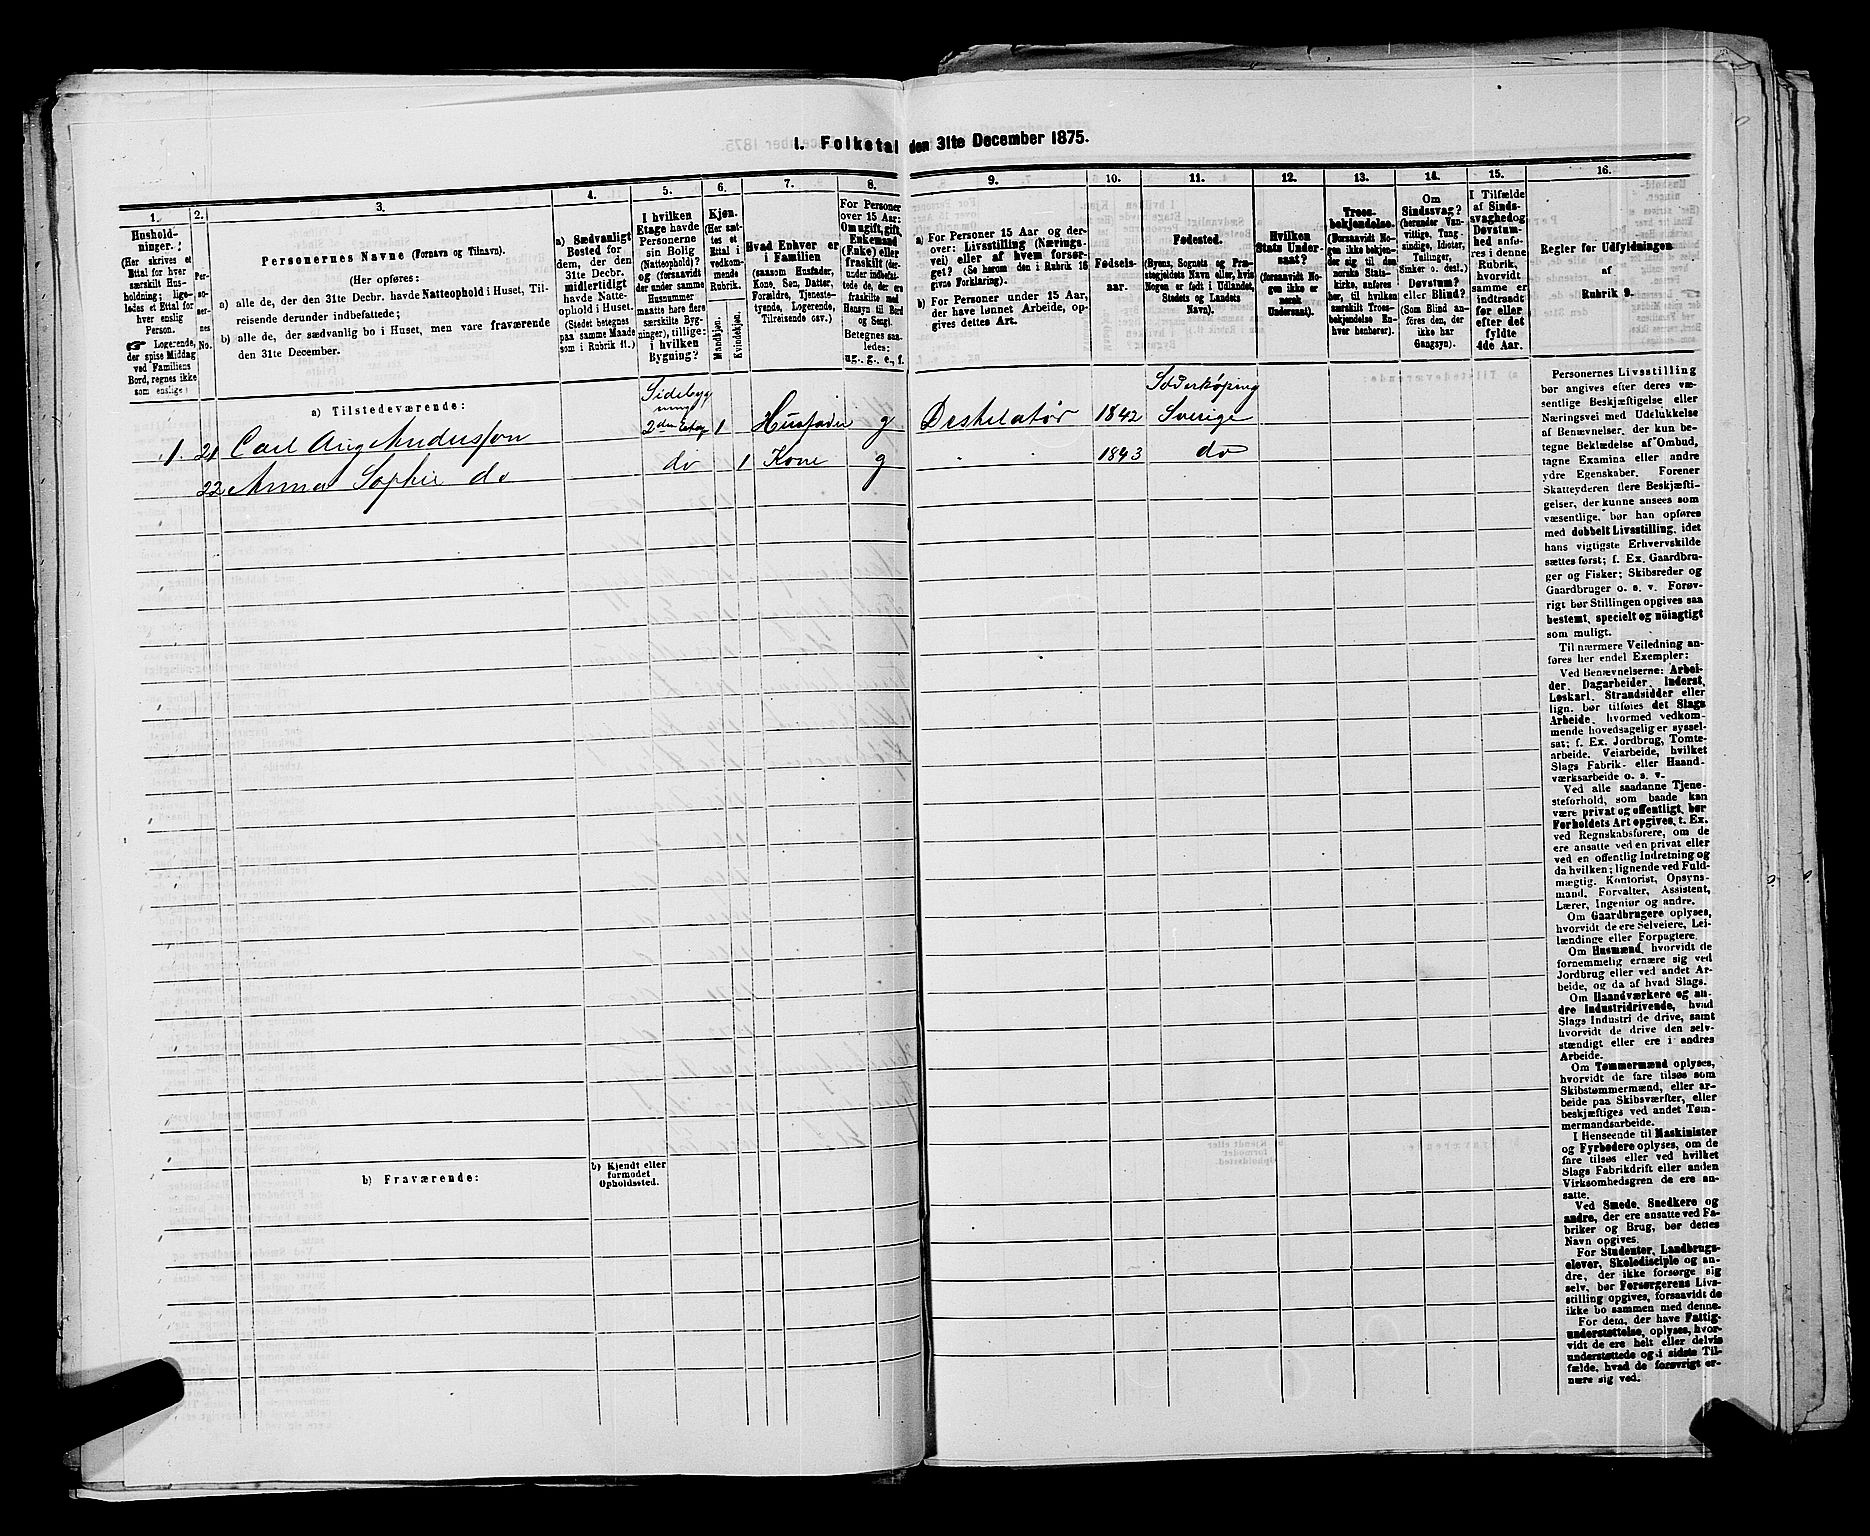 I. Folketal den 31te December 1875.
1.
Husholdninger.
(Her skrives et
Ettal for hver
særskilt Husholdning; ligeledes et Ettal for
hver enslig
Person.
☞ Logerende,
der spise Middag
ved Familiens
Bord, regnes ikke
som enslige.)
2.
Personernes No.
3.
Personernes Navne (Fornavn og Tilnavn).
(Her opføres:
a) alle de, der den 31te Decbr. havde Natteophold i Huset, Tilreisende derunder indbefattede;
b) alle de, der sædvanlig bo i Huset, men vare fraværende
den 31te December.
4.
a) Sædvanligt
Bosted for
dem, der den
31te Decbr.
midlertidigt
havde Natteophold i Huset.
(Stedet betegnes
paa samme Maade
som i Rubrik 11.)
5.
I hvilken
Etage havde
Personerne
sin Bolig
(Natteophold)?
og (forsaavidt
der under samme
Husnummer
maatte høre flere
særskilte Bygninger), tillige:
i hvilken
Bygning?
6.
Kjøn.
(Her sættes et
Ettal i
vedkommende
Rubrik.)
Mandkjøn.
Kvindekjøn.
7.
Hvad Enhver er
i Familien
(saasom Husfader,
Kone, Søn, Datter,
Forældre, Tjenestetyende, Logerende,
Tilreisende osv.)
8.
For Personer
over 15 Aar:
Om ugift, gift,
Enkemand
(Enke) eller
fraskilt (derunder indbefattede de, der ere
fraskilte med
Hensyn til Bord
og Seng).
Betegnes saaledes:
ug., g., e., f.
9.
a) For Personer 15 Aar og derover: Livsstilling (Næringsvei) eller af hvem forsørget? (Se herom den i Rubrik 16
givne Forklaring).
b) For Personer under 15 Aar,
der have lønnet Arbeide, opgives dettes Art.
10.
Fødselsaar.
11.
Fødested.
(Byens, Sognets og Præstegjeldets Navn eller, hvis
Nogen er født i Udlandet,
Stedets og Landets
Navn).
12.
Hvilken
Stats Undersaat?
(forsaavidt Nogen ikke er
norsk
Undersaat).
13.
Troesbekjendelse.
(Forsaavidt Nogen ikke bekjender sig til den
norske Statskirke, anføres
her, til hvilken
særskilt Troesbekjendelse Enhver henhører).
14.
Om
Sindssvag?
(herunder Vanvittige, Tungsindige, Idioter,
Tullinger,
Sinker o. desl.)
Døvstum?
eller Blind?
(Som Blind anføres den, der
ikke har
Gangsyn).
15.
I Tilfælde
af Sindssvaghed og
Døvstumhed anføres i denne
Rubrik,
hvorvidt
samme er
indtraadt
før eller
efter det
fyldte
4de Aar.
16.
Regler for Udfyldningen
af
Rubrik 9.
a) Tilstedeværende:
1. 21 Carl Aug Andersson Sidebygning 2den Etage 1 Husfader g Destilatør 1842 Söderköping Sverige
22 Anna Sophie do do 1 Kone g 1843 do
b) Fraværende:
b) Kjendt eller
formodet
Opholdssted.
Personernes Livsstilling
bør angives efter deres væsentlige Beskjæftigelse eller
Næringsvei med Udelukkelse
af Benævnelser, der kun betegne Beklædelse af Ombud,
tagne Examina eller andre
ydre Egenskaber. Forener
Skatteyderen flere Beskjæftigelser, der kunne ansees som
væsentlige, bør han opføres
med dobbelt Livsstilling, idet
hans vigtigste Erhvervskilde
sættes først; f. Ex. Gaardbruger og Fisker; Skibsreder og
Gaardbruger o. s. v. Forøvrigt bør Stillingen opgives saa
bestemt, specielt og nöiagtigt
som muligt.
Til nærmere Veiledning anføres her endel Exempler:
Ved Benævnelserne: Arbeider, Dagarbeider, Inderst,
Løskarl, Strandsidder eller
lign. bør tilføies det Slags
Arbeide, hvormed vedkommende hovedsagelig er sysselsat; f. Ex. Jordbrug, Tomtearbeide, Veiarbeide, hvilket
Slags Fabrik- eller Haandværksarbeide o. s. v.
Ved alle saadanne Tjenesteforhold, som baade kan
være privat og offentligt, bør
Forholdets Art opgives, t. Ex.
ved Regnskabsførere, om de
ere ansatte ved en privat eller
ved en offentlig Indretning og
da hvilken; lignende ved Fuldmægtig, Kontorist, Opsynsmand, Forvalter, Assistent,
Lærer, Ingeniør og andre.
Om Gaardbrugere oplyses,
hvorvidt de ere Selveiere, Leilændinge eller Forpagtere.
Om Husmænd, hvorvidt de
fornemmelig ernære sig ved
Jordbrug eller ved andet Arbeide, og da af hvad Slags.
Om Haandværkere og andre Industridrivende, hvad
Slags Industri de drive, samt
hvorvidt de drive den selvstændigt eller ere i andres
Arbeide.
Om Tømmermænd oplyses,
hvorvidt de fare tilsøs som
Skibstømmermænd, eller arbeide paa Skibsværfter, eller
beskjæftiges ved andet Tømmermandsarbeide.
I Henseende til Maskinister
og Fyrbødere oplyses, om de
fare tilsøs eller ved hvilket
Slags Fabrikdrift eller anden
Virksomhedsgren de ere ansatte.
Ved Smede, Snedkere og
andre, der ere ansatte ved Fabriker og Brug, bør dettes
Navn opgives.
For Studenter, Landbrugselever, Skoledisciple og andre, der ikke forsørge sig
selv, bør Forsørgerens Livsstilling opgives, forsaavidt de
ikke bo sammen med denne.
For dem, der have Fattigunderstøttelse, oplyses, hvorvidt de ere helt eller delvis
understøttede og i sidste Tilfælde, hvad de forøvrigt ernære sig ved.